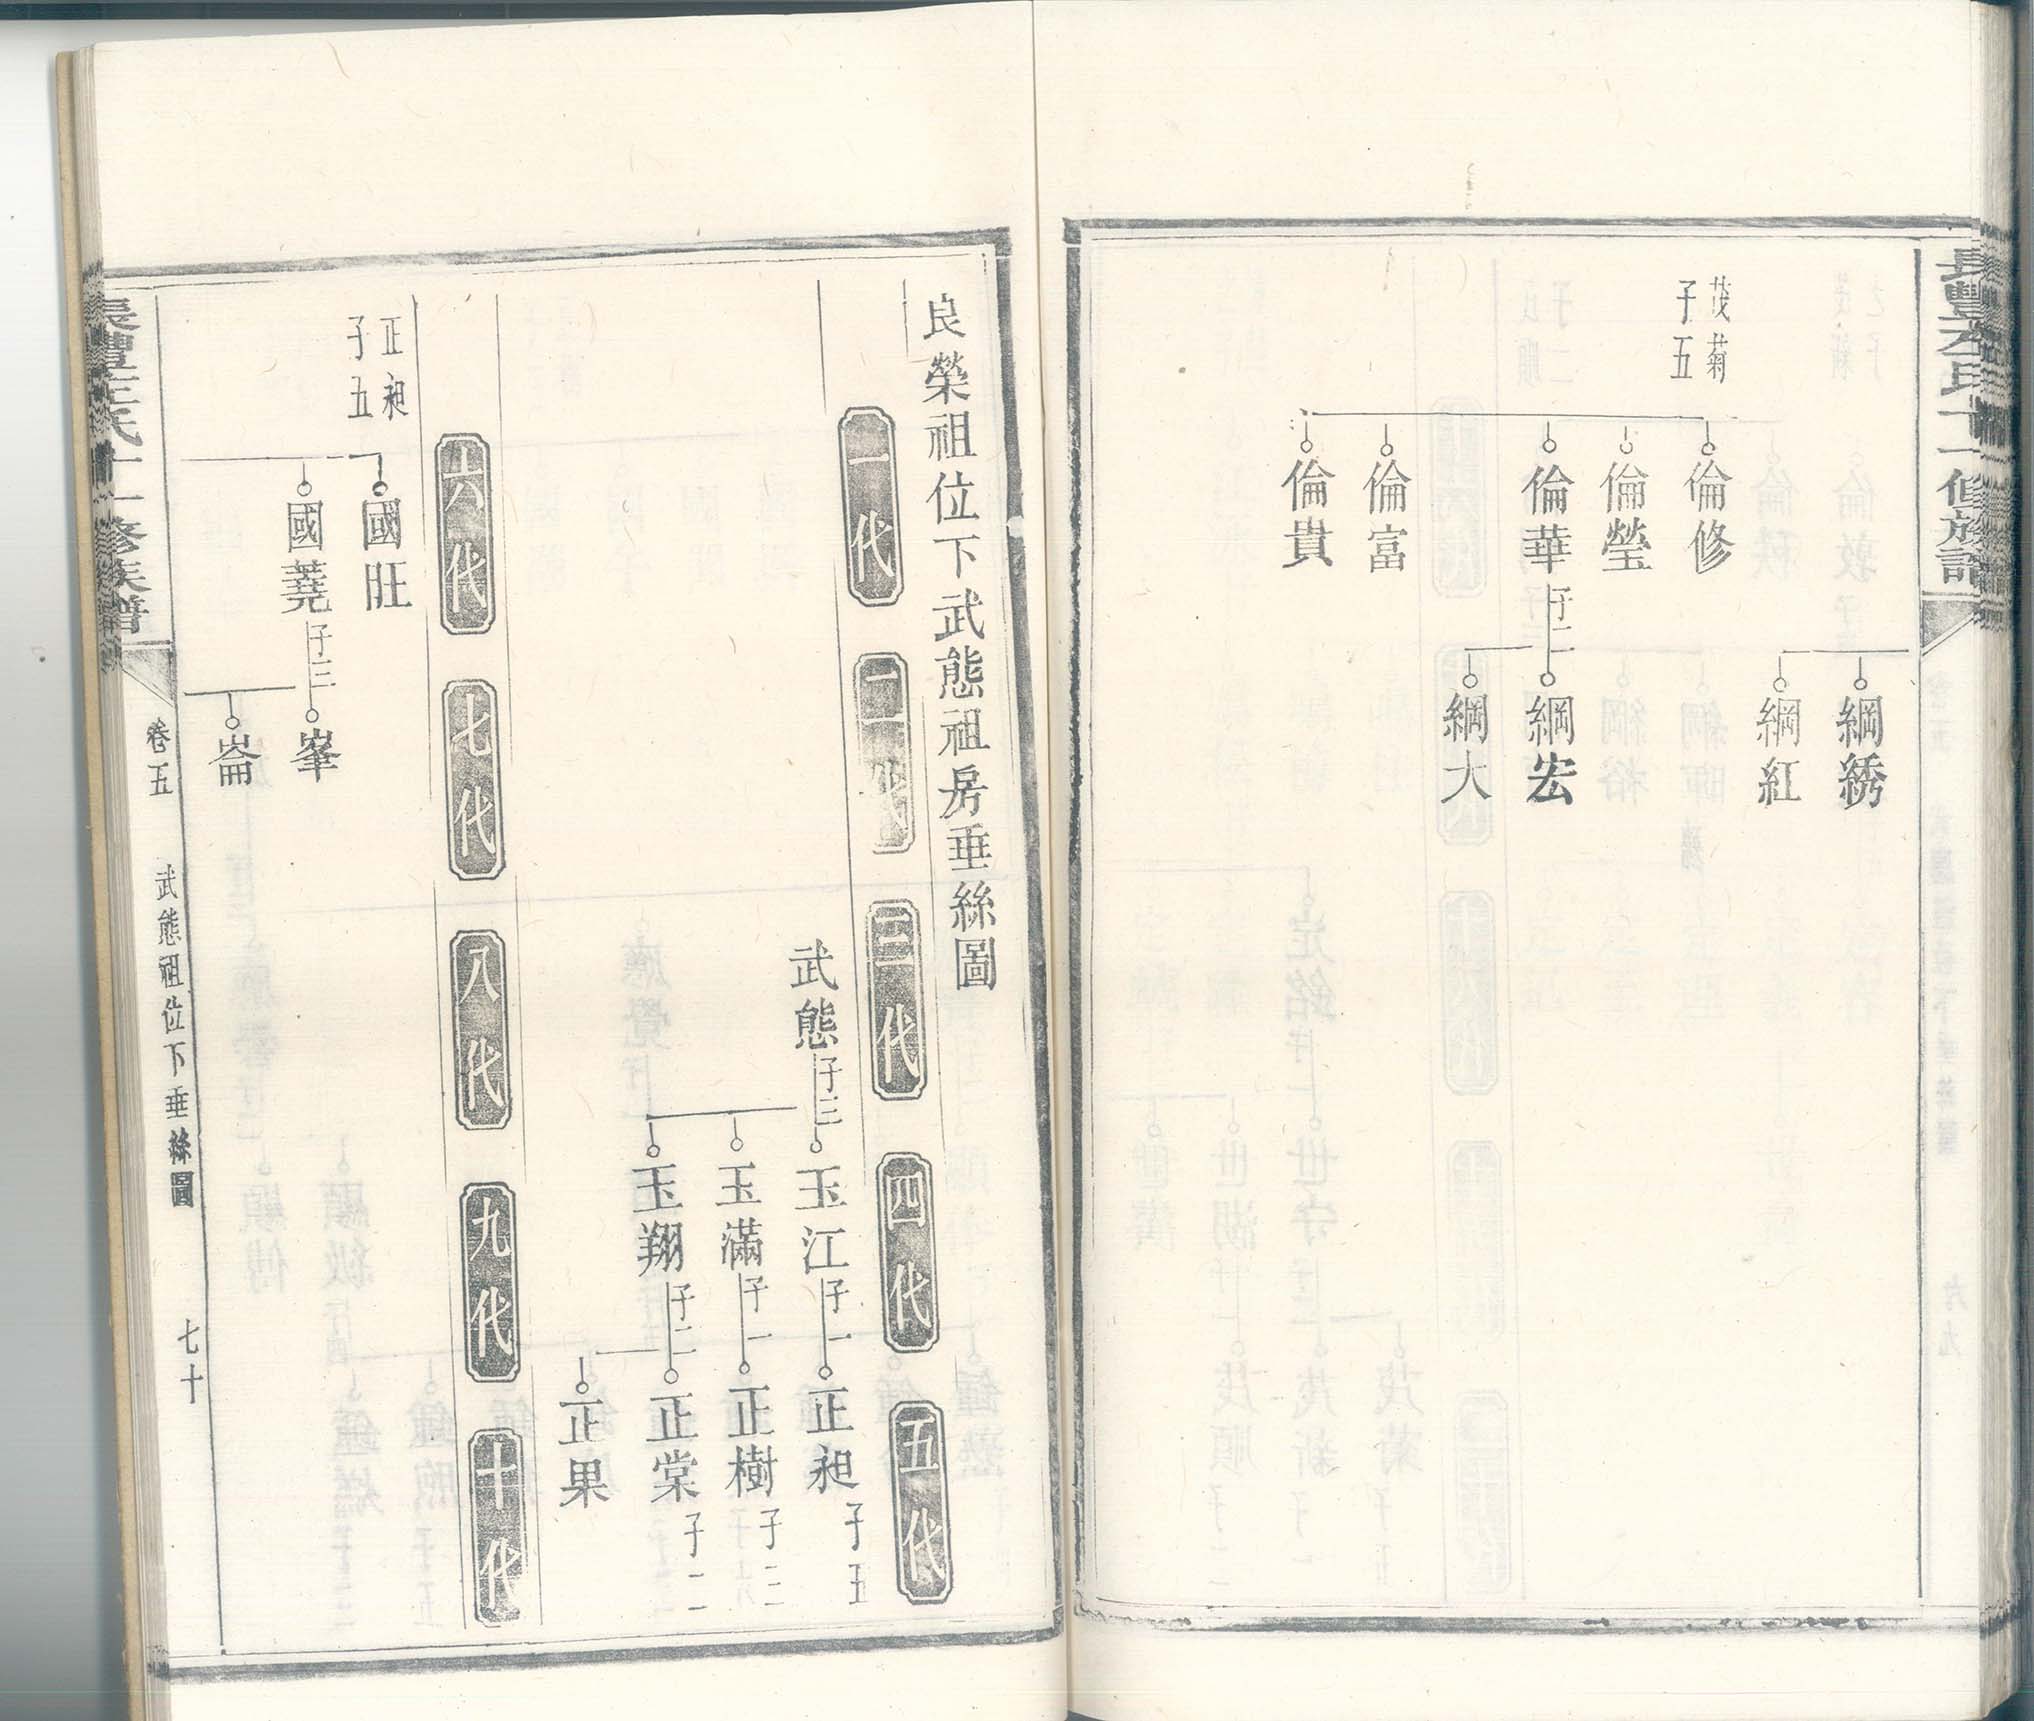 長豐左氏十一修族譜
茂菊
子五
倫修
倫瑩
倫華 子二
倫富
倫貴
綱綉
綱紅
綱宏
綱大
良榮祖位下武態祖房垂絲圖
一代
二代
三代
四代
五代
武態 子三
玉江 子一
玉滿 子一
玉翔 子二
正昶 子五
正樹 子三
正棠 子二
正果
六代
七代
八代
九代
十代
正昶
子五
國旺
國蕘 子三
峯
崙
長豐左氏十一修族譜
卷五
武態祖位下垂絲圖
七十